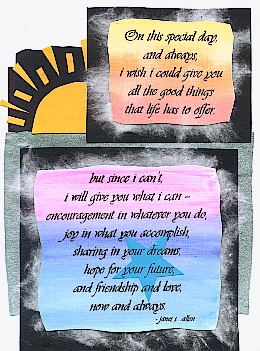 On this special day,
and always,
i wish i could give you
all the good things
that life has to offer.
but since i can't,
i will give you what i can --
encouragement in whatever you do,
joy in what you accomplish,
sharing in your dreams,
hope for your future,
and friendship and love,
now and always.
- janet s. allen